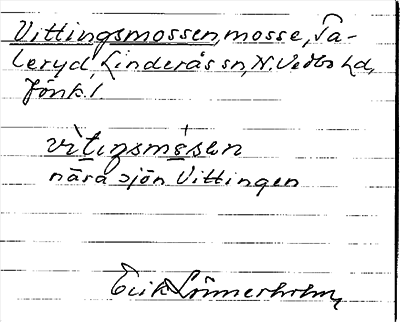 Vittingsmossen, mosse, Ta-
leryd, Linderås sn, N. Vedbo hd,
Jönk. l.
vìtiŋsmòsən
nära sjön Vittingen
Erik Lönnerholm